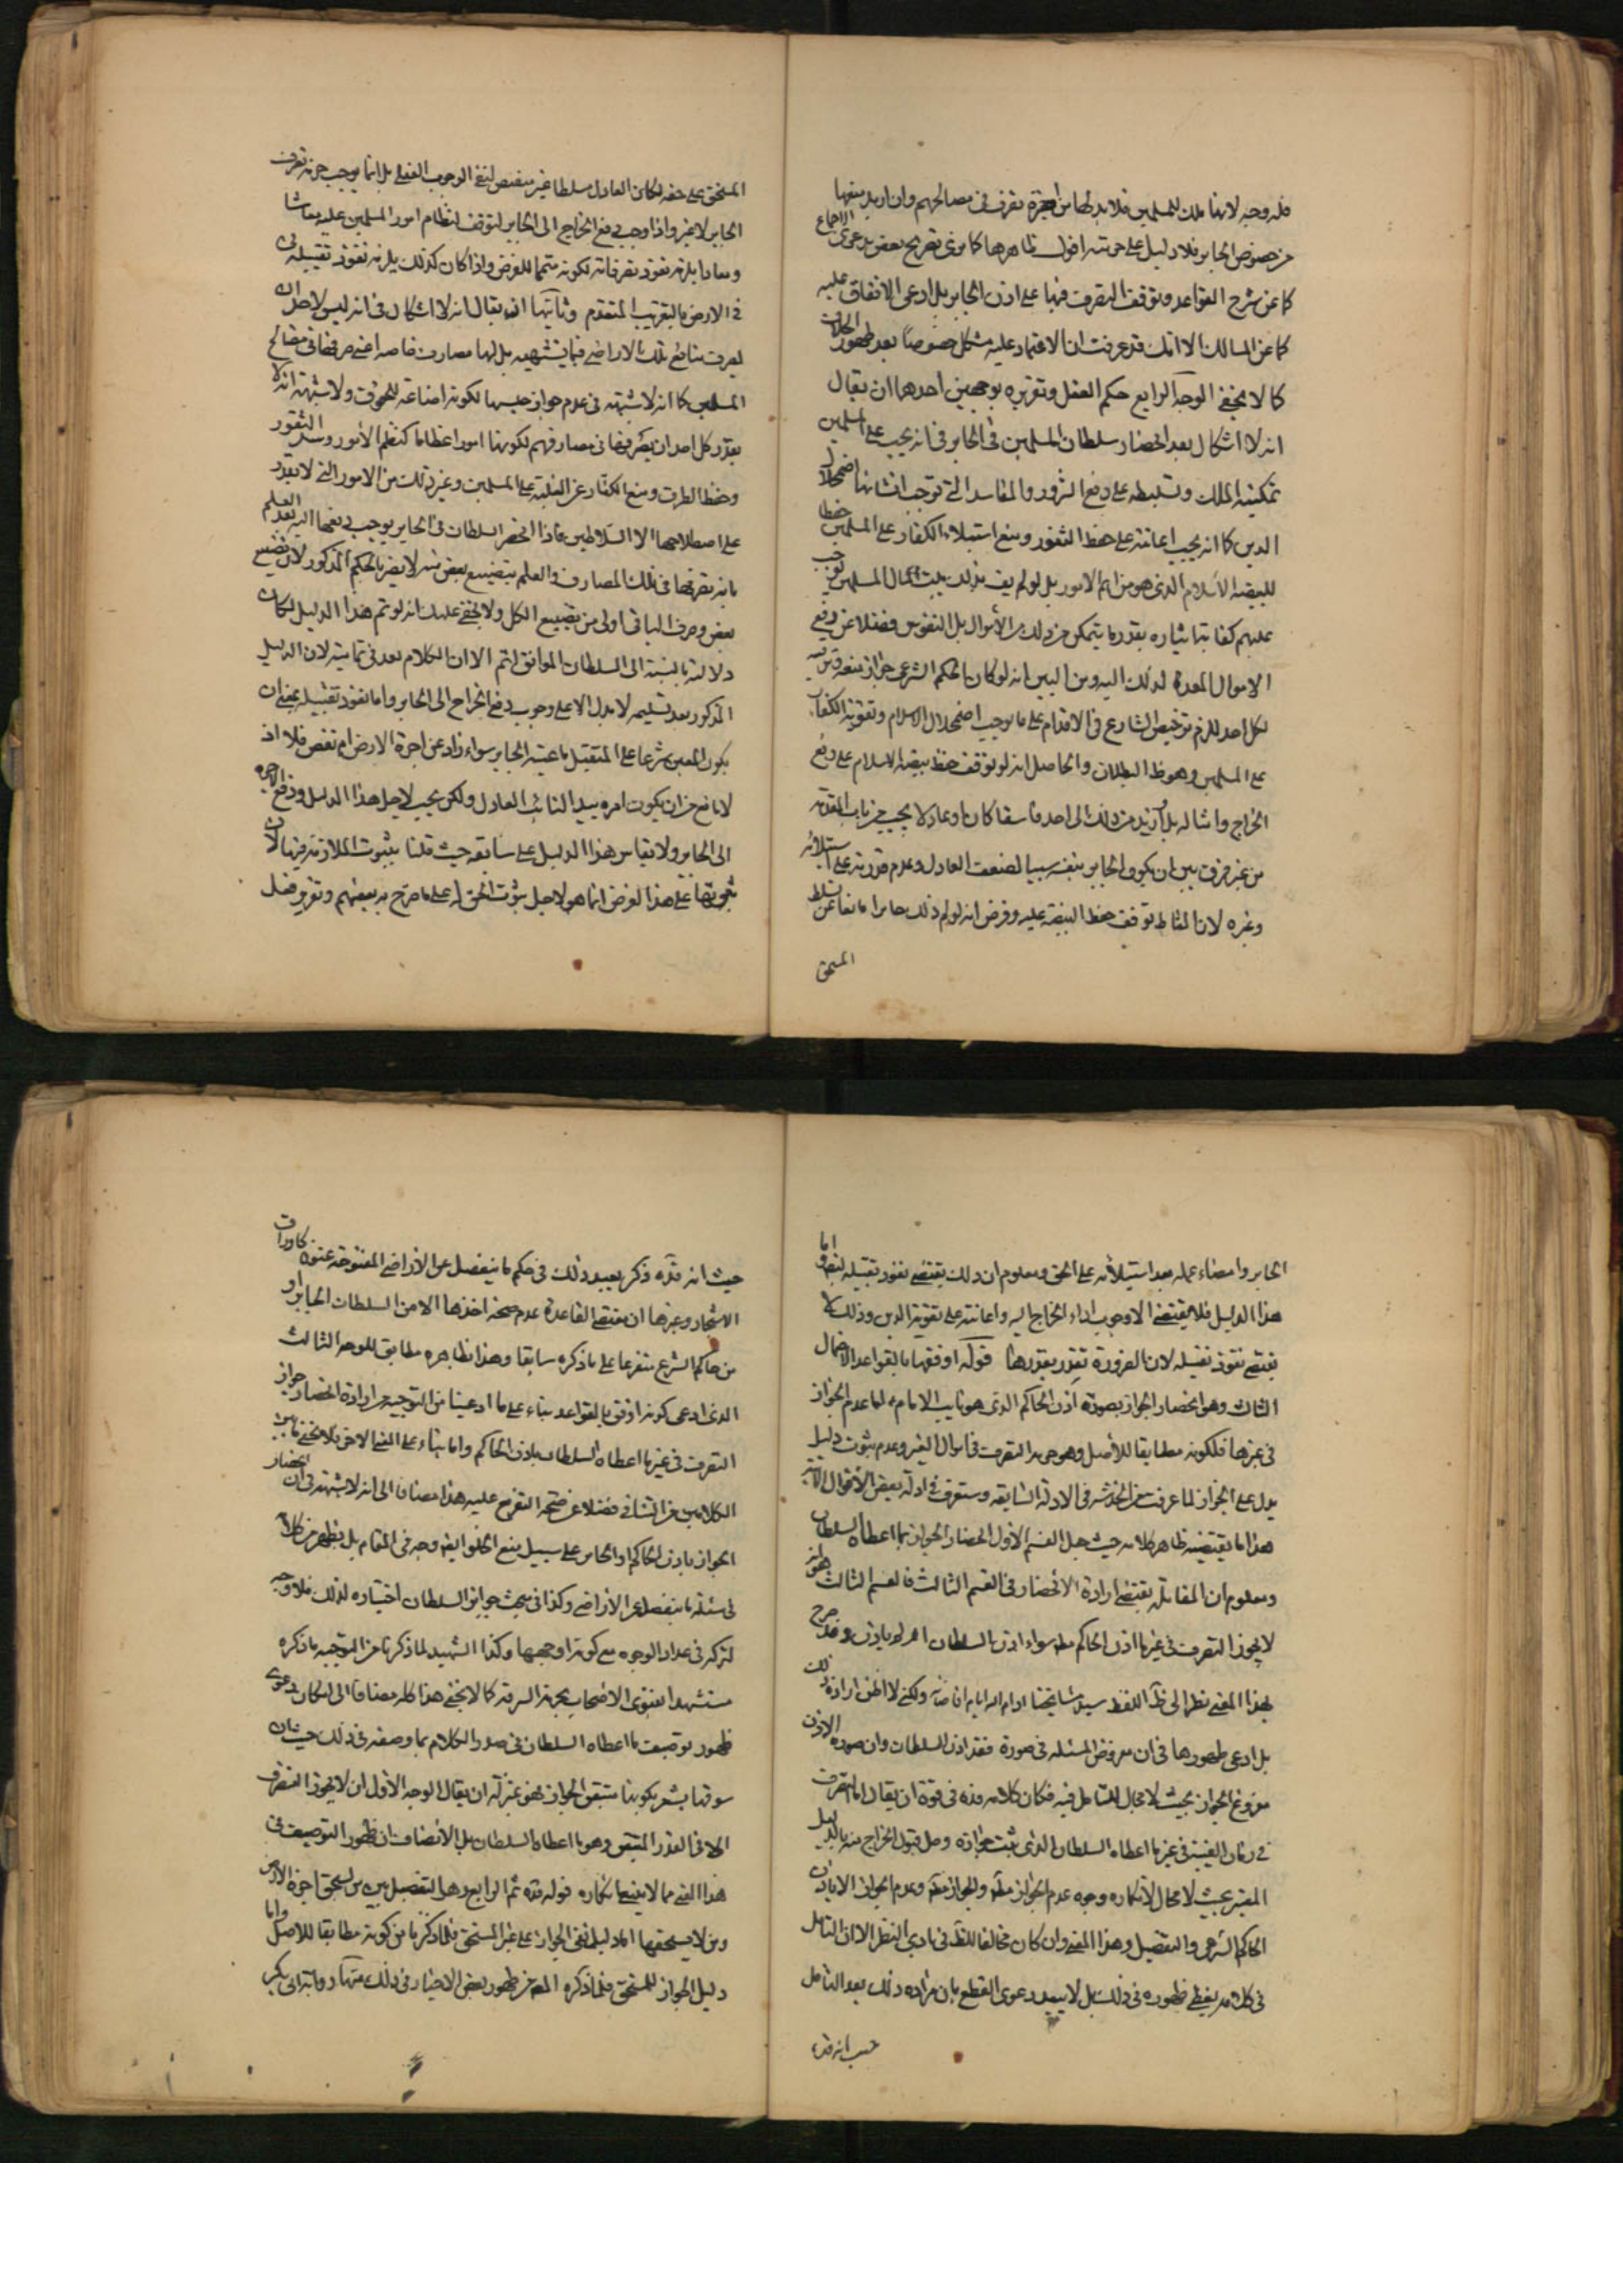 فله وجه لانها ملك للمسلمين فلا بد لها من اجرة تصرف في مصالحهم وان اريد منعها
من خصوص الجابر فلا دليل على حرمته اقول ظاهرها كما مرّ في تصريح بعض بدعوى الاجماع
كما عن شرح القواعد وتوقف التصرف فيها على اذن الجابر بل ادعى الاتفاق عليه
كما عن المسالك الا انك قد عرفت ان الاعتماد عليه مشكل خصوصا بعد ظهور الخلاف
كما لا يخفى الوجه الرابع حكم العقل وتقريره بوجهين احدهما ان يقال
انه لا اشكال بعد انحصار سلطان المسلمين في الجابر في انه يجب على المسلمين
تمكينه الملك وتسليطه على دفع الشرور والمفاسد التي توجب انشائها اضمحلال
الدين كما انه يجب اعانته على حفظ الثغور ومنع استيلاء الكفار على المسلمين حفظا
للبيضة الاسلام الذي هو من اهم الامور بل لو لم يف بذلك بيت المال المسلمين يجب
عليهم كفاية ايثاره بقدر ما يتمكن من ذلك من الأموال بل النفوس فضلا عن دفع
الاموال المعدة لذلك اليه ومن البين انه لو كان الحكم الشرعي جواز منعه
لكل احد للزم ترخيص الشارع في الاقدام على ما يوجب اضمحلال الاسلام وتقوية الكفار
على المسلمين وهو ظ البطلان والحاصل انه لو توقف حفظ بيضة الاسلام على دفع
الخراج وامثاله بل ازيد من ذلك الى احد فاسقا كان او عادلا يجب من باب المقدمة
من غير فرق بين ان يكون الجابر بنفسه سببا لضعف العادل وعدم قدرته على استيلائه
وغيره لان المناط توقف حفظ البيضة عليه وفرض انه لو لم ذلك جابرا مانعا عن تسلط
المستحق
المستحق على حقه لكان العادل مسلطا غير مقتض لنفي الوجوب الفعلي بل انما يوجب حرمة تصرف
الجابر لا غير واذا وجب دفع الخراج الى الجابر لتوقف انتظام امور المسلمين عليه معاشا
ومعادا يلزمه نفوذ تصرفاته لكونه متمما للغرض واذا كان كذلك يلزمه نفوذ تقبيله
في الارض بالتقريب المتقدم وثانيها ان يقال انه لا اشكال في انه ليس لاحد ان
يصرف منافع تلك الاراضي فيما يشتهيه بل لها مصارف خاصة اعني صرفها في مصالح
المسلمين كما انه لا شبهة في عدم جواز حبسها لكونه اضاعة للحقوق ولا شبهة انه لا
يقدر كل احد ان يصرفها في مصارفهم لكونها امورا عظاما كنظم الأمور وسد الثغور
وحفظ الطرق ومنع الكفار عن الغلبة على المسلمين وغير ذلك من الامور التي لا يقدر
على اصطلاحها الا السلاطين فاذا انحصر السلطان في الجابر يوجب دفعها اليه بعد العلم
بانه يصرفها في تلك المصارف والعلم بتضييع بعض منه لا يضر بالحكم المذكور لان تضييع
بعض وصرف الباقي اولى من تضييع الكل ولا يخفى عليك انه لو تم هذا الدليل لكان
دلالته بالنسبة الى السلطان الموافق اتم الا ان الكلام بعد في تماميته لان الدليل
المذكور بعد تسليمه لا يدل الا على وجوب دفع الخراج الى الجابر واما نفوذ تقبيله بمعنى ان
يكون المعين شرعا على المتقبل ما عينه الجابر سواء زاد عن اجرة الارض ام نقص فلا اذ
لا مانع من ان يكون امره بيد النائب العادل ولكن يجب لاجل هذا الدليل ودفع الاجرة
الى الجابر ولا يقاس هذا الدليل على سابقه حيث قلنا بثبوت الملازمة فيها لان
ثبوتها على هذا الغرض انما هو لاجل ثبوت الحق له على ما صرح به بعضهم وتقرير فعل
الجابر وامضاء عمله بعد استيلائه على الحق ومعلوم ان ذلك يقتضي نفوذ تقبيله ايضا واما
هذا الدليل فلا يقتضي الا وجوب اداء الخراج اليه واعانته على تقوية الدين وذلك لا
يقتضي نفوذ تقبيله لان الضرورة تقدر بقدرها قوله اوفقها بالقواعد الاحتمال
الثالث وهو انحصار الجواز بصورة اذن الحاكم الذي هو نايب الامام ع اما عدم الجواز
في غيرها فلكونه مطابقا للأصل وهو حرمة التصرف في اموال الغير وعدم ثبوت دليل
يدل على الجواز لما عرفت من الخدشة في الادلة السابقة وستعرف في ادلة بعض الأقوال الآتية
هذا ما يقتضيه ظاهر كلامه حيث جعل القسم الاول انحصار الجواز بما اعطاه السلطان
ومعلوم ان المقابلة يقتضي ارادة الانحصار في القسم الثالث فالقسم الثالث هو انه
لا يجوز التصرف في غير ما اذن الحاكم مط سواء اذن السلطان ام لم ياذن وقد صرح
بهذا المعنى نظرا الى ظ اللفظ سيد مشايخنا ادام الله ايام افاضاته ولكني لا اظن ارادة ذلك
بل ادعى ظهورها في ان معروض المسئلة في صورة فقد اذن السلطان وان صورة الاذن
مفروغ الجواز بحيث لا مجال للتأمل فيه فكان كلامه قده في قوة ان يقال اما التصرف
في زمان الغيبة في غير ما اعطاه السلطان الذي ثبت جوازه وحل قبول الخراج منه بالدليل
المعتبر بحيث لا مجال لانكاره وجوه عدم الجواز مط والجواز مط وعدم الجواز الا باذن
الحاكم الشرعي والتفصيل وهذا المعنى وان كان مخالفا للظ في بادي النظر الا ان التأمل
في كلامه يعطي ظهوره في ذلك بل لا يبعد دعوى القطع بان مراده ذلك بعد التأمل
حيث انه قده
حيث انه قده ذكر بعيد ذلك في حكم ما ينفصل عن الاراضي المفتوحة عنوة كاوراق
الاشجار وغيرها ان مقتضى القاعدة عدم صحة اخذها الا من السلطان الجابر او
من حاكم الشرع متفرعا على ما ذكره سابقا وهذا بظاهره مطابق للوجه الثالث
الذي ادعى كونه اوفق بالقواعد بناء على ما ادعينا من التوجيه من ارادة انحصار جواز
التصرف في غير ما اعطاه السلطان باذن الحاكم واما بناء على المعنى الاخر فلا يخفى ما بين
الكلامين من التنافي فضلا عن صحة التفريع عليه هذا مضافا الى انه لا شبهة في ان انحصار
الجواز باذن الحاكم او الجابر على سبيل منع الخلو ايضا وجه في المقام بل يظهر من كلامه
في مسئلة ما ينفصل من الأراضي وكذا في مبحث جوايز السلطان اختياره لذلك فلا وجه
لتركه في عداد الوجوه مع كونه اوجهها وكذا الشهيد لما ذكرنا من التوجيه ما ذكره
مستشهدا بفتوى الاصحاب بحرمة السرقة كما لا يخفى هذا كله مضافا الى امكان دعوى
ظهور توصيف ما اعطاه السلطان في صدر الكلام بما وصفه في ذلك حيث ان
سوقها يشعر بكونها متيقن الجواز فهو بمنزلة ان يقال الوجه الأول ان لا يجوز التصرف
الا في القدر المتيقن وهو ما اعطاه السلطان بل الانصاف ان ظهور التوصيف في
هذا المعنى مما لا ينبغي انكاره قوله قده ثم الرابع وهو التفصيل بين من يستحق اجرة الارض
ومن لا يستحقها اما دليل نفي الجواز على غير المستحق فلما ذكرنا من كونه مطابقا للاصل واما
دليل الجواز للمستحق فلما ذكره المص من ظهور بعض الاخبار في ذلك منها رواية ابي بكر